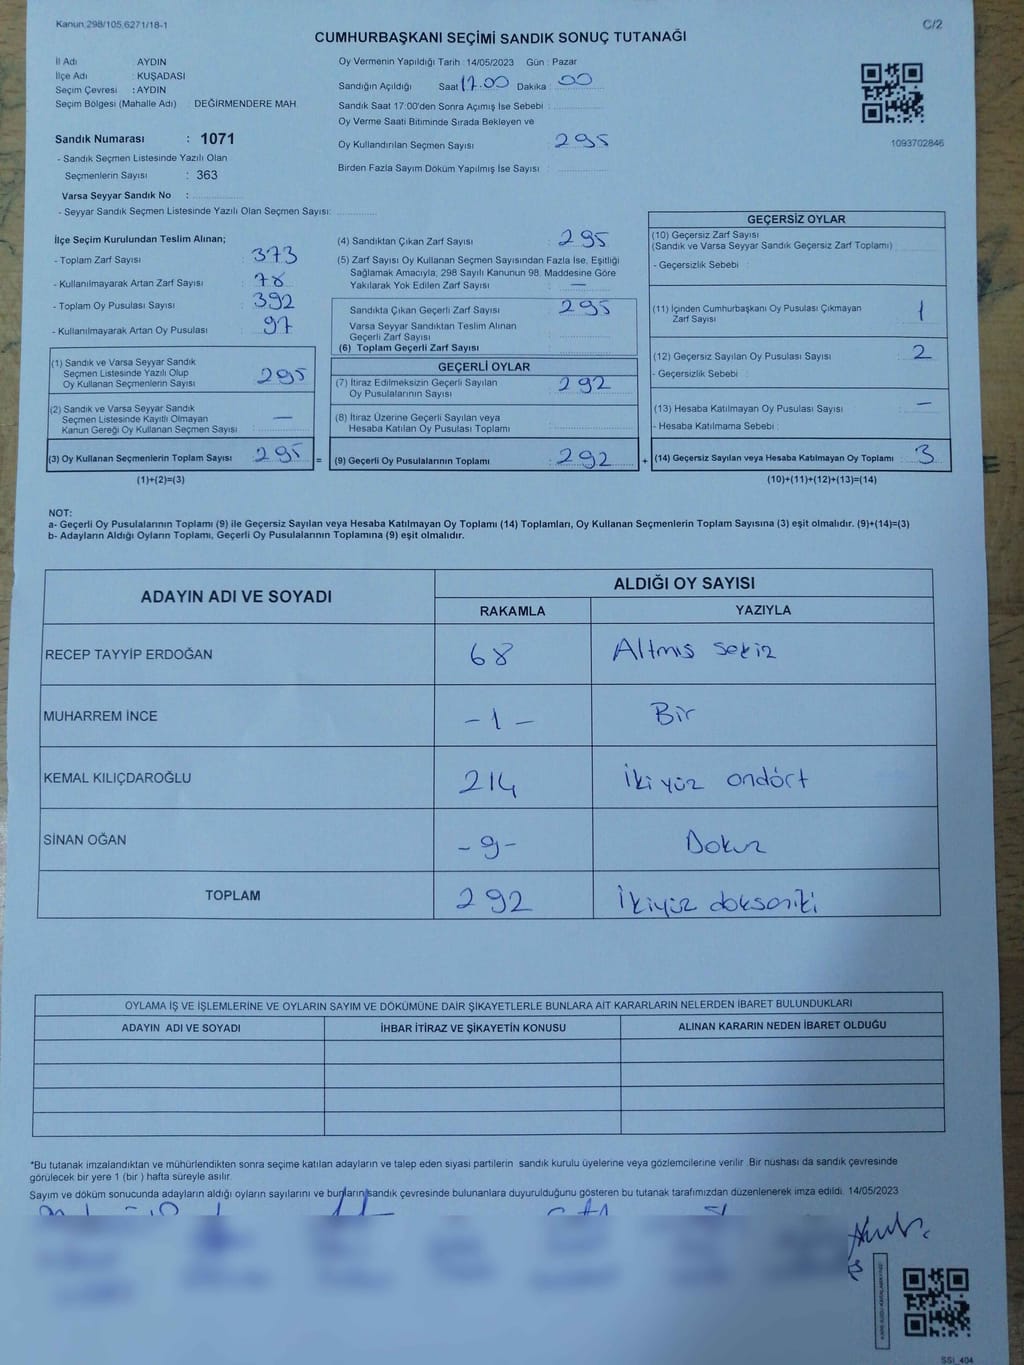 Kanun 298/105,6271/18-1
C/2
CUMHURBAŞKANI SEÇİMİ SANDIK SONUÇ TUTANAĞI
İl Adı : AYDIN
İlçe Adı : KUŞADASI
Seçim Çevresi : AYDIN
Seçim Bölgesi (Mahalle Adı) : DEĞİRMENDERE MAH.
Sandık Numarası : 1071
- Sandık Seçmen Listesinde Yazılı Olan
Seçmenlerin Sayısı : 363
Varsa Seyyar Sandık No :
- Seyyar Sandık Seçmen Listesinde Yazılı Olan Seçmen Sayısı:
Oy Vermenin Yapıldığı Tarih : 14/05/2023 Gün : Pazar
Sandığın Açıldığı Saat 17.00 Dakika : 00
Sandık Saat 17:00'den Sonra Açımış İse Sebebi :
Oy Verme Saati Bitiminde Sırada Bekleyen ve
Oy Kullandırılan Seçmen Sayısı : 295
Birden Fazla Sayım Döküm Yapılmış İse Sayısı :
1093702846
İlçe Seçim Kurulundan Teslim Alınan;
- Toplam Zarf Sayısı : 373
- Kullanılmayarak Artan Zarf Sayısı : 78
- Toplam Oy Pusulası Sayısı : 392
- Kullanılmayarak Artan Oy Pusulası : 97
(1) Sandık ve Varsa Seyyar Sandık
Seçmen Listesinde Yazılı Olup
Oy Kullanan Seçmenlerin Sayısı : 295
(2) Sandık ve Varsa Seyyar Sandık
Seçmen Listesinde Kayıtlı Olmayan
Kanun Gereği Oy Kullanan Seçmen Sayısı : —
(3) Oy Kullanan Seçmenlerin Toplam Sayısı : 295 =
(1)+(2)=(3)
(4) Sandıktan Çıkan Zarf Sayısı : 295
(5) Zarf Sayısı Oy Kullanan Seçmen Sayısından Fazla İse, Eşitliği
Sağlamak Amacıyla; 298 Sayılı Kanunun 98. Maddesine Göre
Yakılarak Yok Edilen Zarf Sayısı : —
Sandıkta Çıkan Geçerli Zarf Sayısı : 295
Varsa Seyyar Sandıktan Teslim Alınan
Geçerli Zarf Sayısı
(6) Toplam Geçerli Zarf Sayısı :
GEÇERLİ OYLAR
(7) İtiraz Edilmeksizin Geçerli Sayılan
Oy Pusulalarının Sayısı : 292
(8) İtiraz Üzerine Geçerli Sayılan veya
Hesaba Katılan Oy Pusulası Toplamı :
(9) Geçerli Oy Pusulalarının Toplamı : 292 +
GEÇERSİZ OYLAR
(10) Geçersiz Zarf Sayısı
(Sandık ve Varsa Seyyar Sandık Geçersiz Zarf Toplamı)
- Geçersizlik Sebebi :
(11) İçinden Cumhurbaşkanı Oy Pusulası Çıkmayan
Zarf Sayısı : 1
(12) Geçersiz Sayılan Oy Pusulası Sayısı : 2
- Geçersizlik Sebebi :
(13) Hesaba Katılmayan Oy Pusulası Sayısı : —
- Hesaba Katılmama Sebebi :
(14) Geçersiz Sayılan veya Hesaba Katılmayan Oy Toplamı : 3
(10)+(11)+(12)+(13)=(14)
NOT:
a- Geçerli Oy Pusulalarının Toplamı (9) ile Geçersiz Sayılan veya Hesaba Katılmayan Oy Toplamı (14) Toplamları, Oy Kullanan Seçmenlerin Toplam Sayısına (3) eşit olmalıdır. (9)+(14)=(3)
b- Adayların Aldığı Oyların Toplamı, Geçerli Oy Pusulalarının Toplamına (9) eşit olmalıdır.
ADAYIN ADI VE SOYADI ALDIĞI OY SAYISI
RAKAMLA YAZIYLA
RECEP TAYYİP ERDOĞAN 68 Altmış sekiz
MUHARREM İNCE -1- Bir
KEMAL KILIÇDAROĞLU 214 İki yüz ondört
SİNAN OĞAN -9- Dokuz
TOPLAM 292 İkiyüz doksaniki
OYLAMA İŞ VE İŞLEMLERİNE VE OYLARIN SAYIM VE DÖKÜMÜNE DAİR ŞİKAYETLERLE BUNLARA AİT KARARLARIN NELERDEN İBARET BULUNDUKLARI
ADAYIN ADI VE SOYADI İHBAR İTİRAZ VE ŞİKAYETİN KONUSU ALINAN KARARIN NEDEN İBARET OLDUĞU
*Bu tutanak imzalandıktan ve mühürlendikten sonra seçime katılan adayların ve talep eden siyasi partilerin sandık kurulu üyelerine veya gözlemcilerine verilir. Bir nüshası da sandık çevresinde
görülecek bir yere 1 (bir) hafta süreyle asılır.
Sayım ve döküm sonucunda adayların aldığı oyların sayılarını ve bunların sandık çevresinde bulunanlara duyurulduğunu gösteren bu tutanak tarafımızdan düzenlenerek imza edildi. 14/05/2023
SSI_404